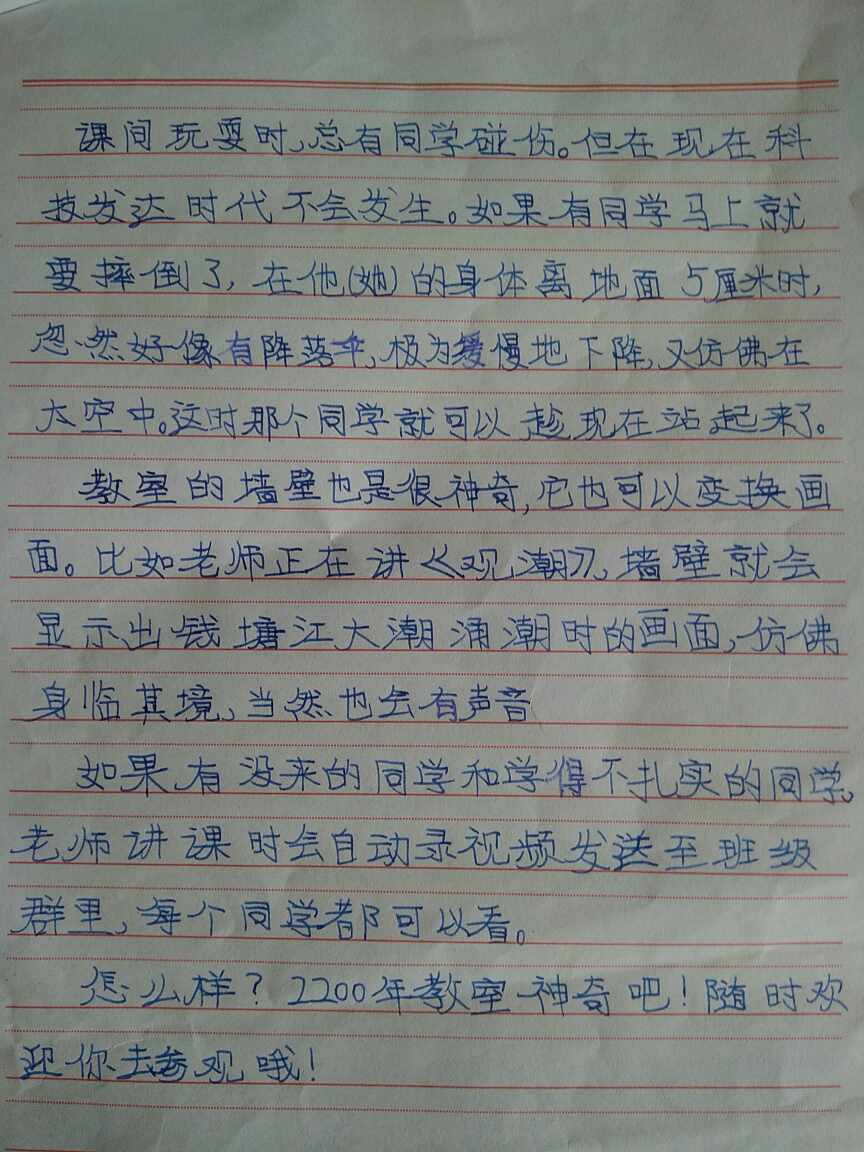 课间玩耍时,总有同学碰伤。但在现在科
技发达时代不会发生。如果有同学马上就
要摔倒了,在他(她)的身体离地面5厘米时,
忽然好像有降落伞,极为缓慢地下降,又仿佛在
太空中。这时那个同学就可以趁现在站起来了。
教室的墙壁也是很神奇,它也可以变换画
面。比如老师正在讲《观潮》,墙壁就会
显示出钱塘江大潮涌潮时的画面,仿佛
身临其境,当然也会有声音
如果有没来的同学和学得不扎实的同学,
老师讲课时会自动录视频发送至班级
群里,每个同学都可以看。
怎么样?2200年教室神奇吧!随时欢
迎你去参观哦!